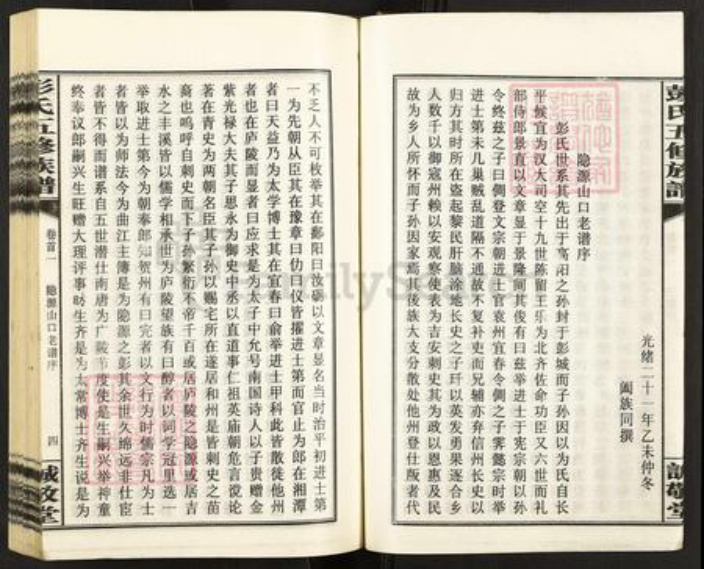 彭氏五修族譜
誠敬堂
光绪二十一年乙未仲冬
阖族同撰
隐源山口老谱序
彭氏世系其先出于高阳之孙封于彭城而子孙因以为氏自长
平候宜为汉大司空十九世陈留王乐为北齐佐命功臣又六世而礼
部侍郎景直以文章显于景隆间其俊有曰兹举进士于宪宗朝以孙
令终兹之子曰倜登文宗朝进士官袁州宜春令倜之子霁懿宗时举
进士第未几巢贼乱道隔不通故不复补吏而兄辅亦弃信州长史以
归方其时所在盗起黎民肝脑涂地长史之子玕以英发勇果逐合乡
人数千以御寇州赖以安观察使表为吉安刺史其为政以恩惠及民
故为乡人所怀而子孙因家焉其後族大支分散处他州登仕版者代
不乏人不可枚举其在鄱阳曰汝砺以文章显名当时治平初进士第
一为先朝从臣其在豫章曰仂曰仪皆擢进士第而官止为郎在湘潭
者曰天益乃为太学博士其在宜春曰俞举进士甲科此皆散徙他州
者也在庐陵而显者曰应求是为太子中允号南国诗人以子贵赠金
紫光禄大夫其子思永为御史中丞以直道事仁祖英庙朝危言谠论
著在青史为两朝名臣其子孙以赐宅所在遂居和州是皆刺史之苗
裔也呜呼自刺史而下子孙繁衍不帝千百或居庐陵之隐源或居吉
水之丰溪皆以儒学相承世为庐陵望族有曰醇者以词学冠里选一
举取进士第今为朝奉郎知贺州有曰完者以文行为时儒宗凡为士
者皆以为师法今为曲江主簿是为隐源之彭其余世久绵远非仕宦
者皆不得而谱系自五世潜仕南唐为广陵节度使是生嗣兴举神童
终奉议郎嗣兴生旺赠大理评事旸生齐是为太常博士齐生说是为
彭氏五修族譜
卷首一
隐源山口老谱序
四
誠敬堂